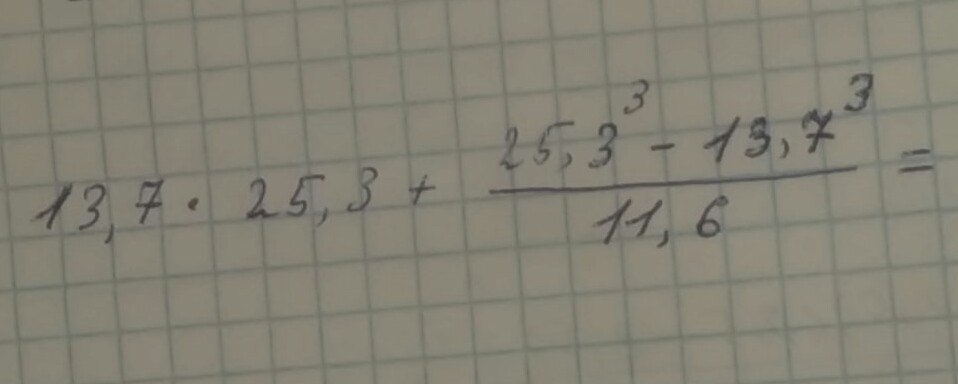 13,7 · 25,3 + \frac{25,3^3 - 13,7^3}{11,6} =